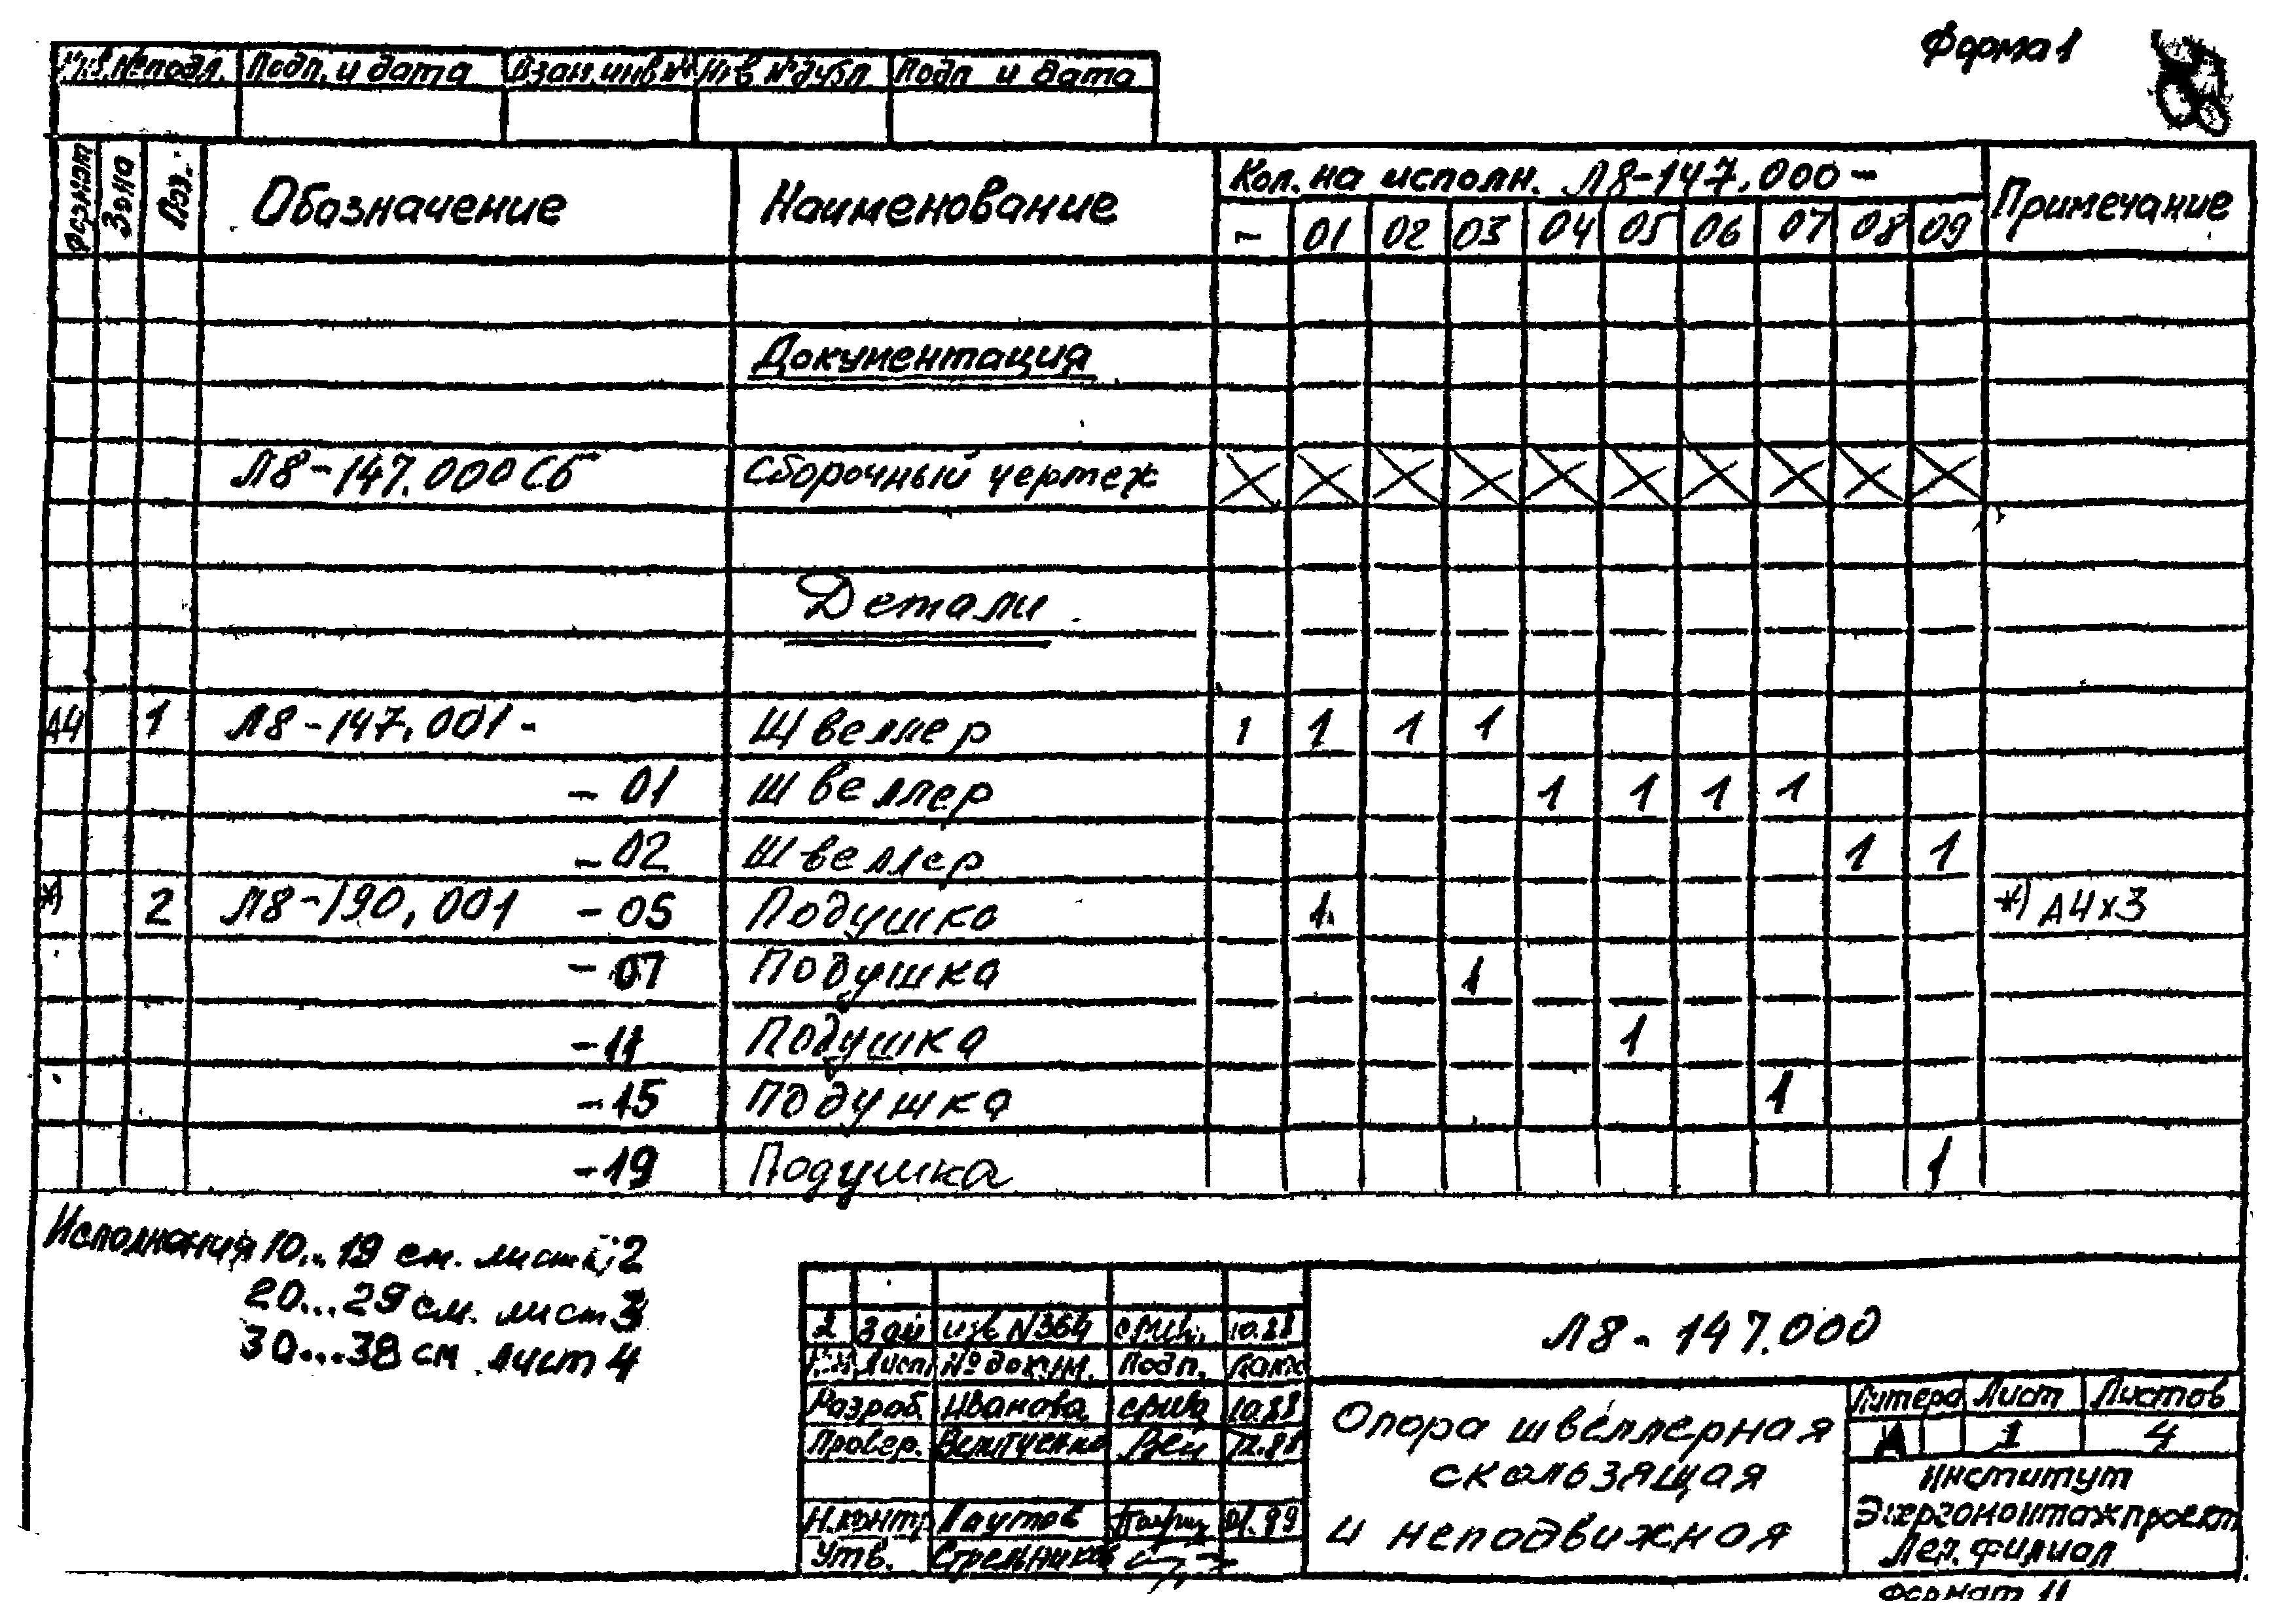 Форма 1
Инв.№подл. Подп. и дата Взам.инв№ Инв №дубл Подп и дата
Формат Зона Поз. Обозначение Наименование Кол. на исполн. Л8-147.000- Примечание
- 01 02 03 04 05 06 07 08 09
Документация
Л8-147.000Сб Сборочный чертеж
Детали
А4 1 Л8-147.001- Швеллер 1 1 1 1
-01 Швеллер 1 1 1 1
-02 Швеллер 1 1
*) 2 Л8-190.001 -05 Подушка 1 *) А4х3
-07 Подушка 1
-11 Подушка 1
-15 Подушка 1
-19 Подушка 1
Исполнения 10...19 см. лист 2
20...29 см. лист 3
30...38 см лист 4
Л8-147.000
2 Зам изв N364 10.88
Изм Лист №докум. Подп. Дата
Разраб. Иванова 10.88
Провер.
Н.контр
Утв. Стрельников
Опора швеллерная
скользящая
и неподвижная
Литера Лист Листов
А 1 4
Институт
Энергомонтажпроект
Лен. филиал
Формат 11